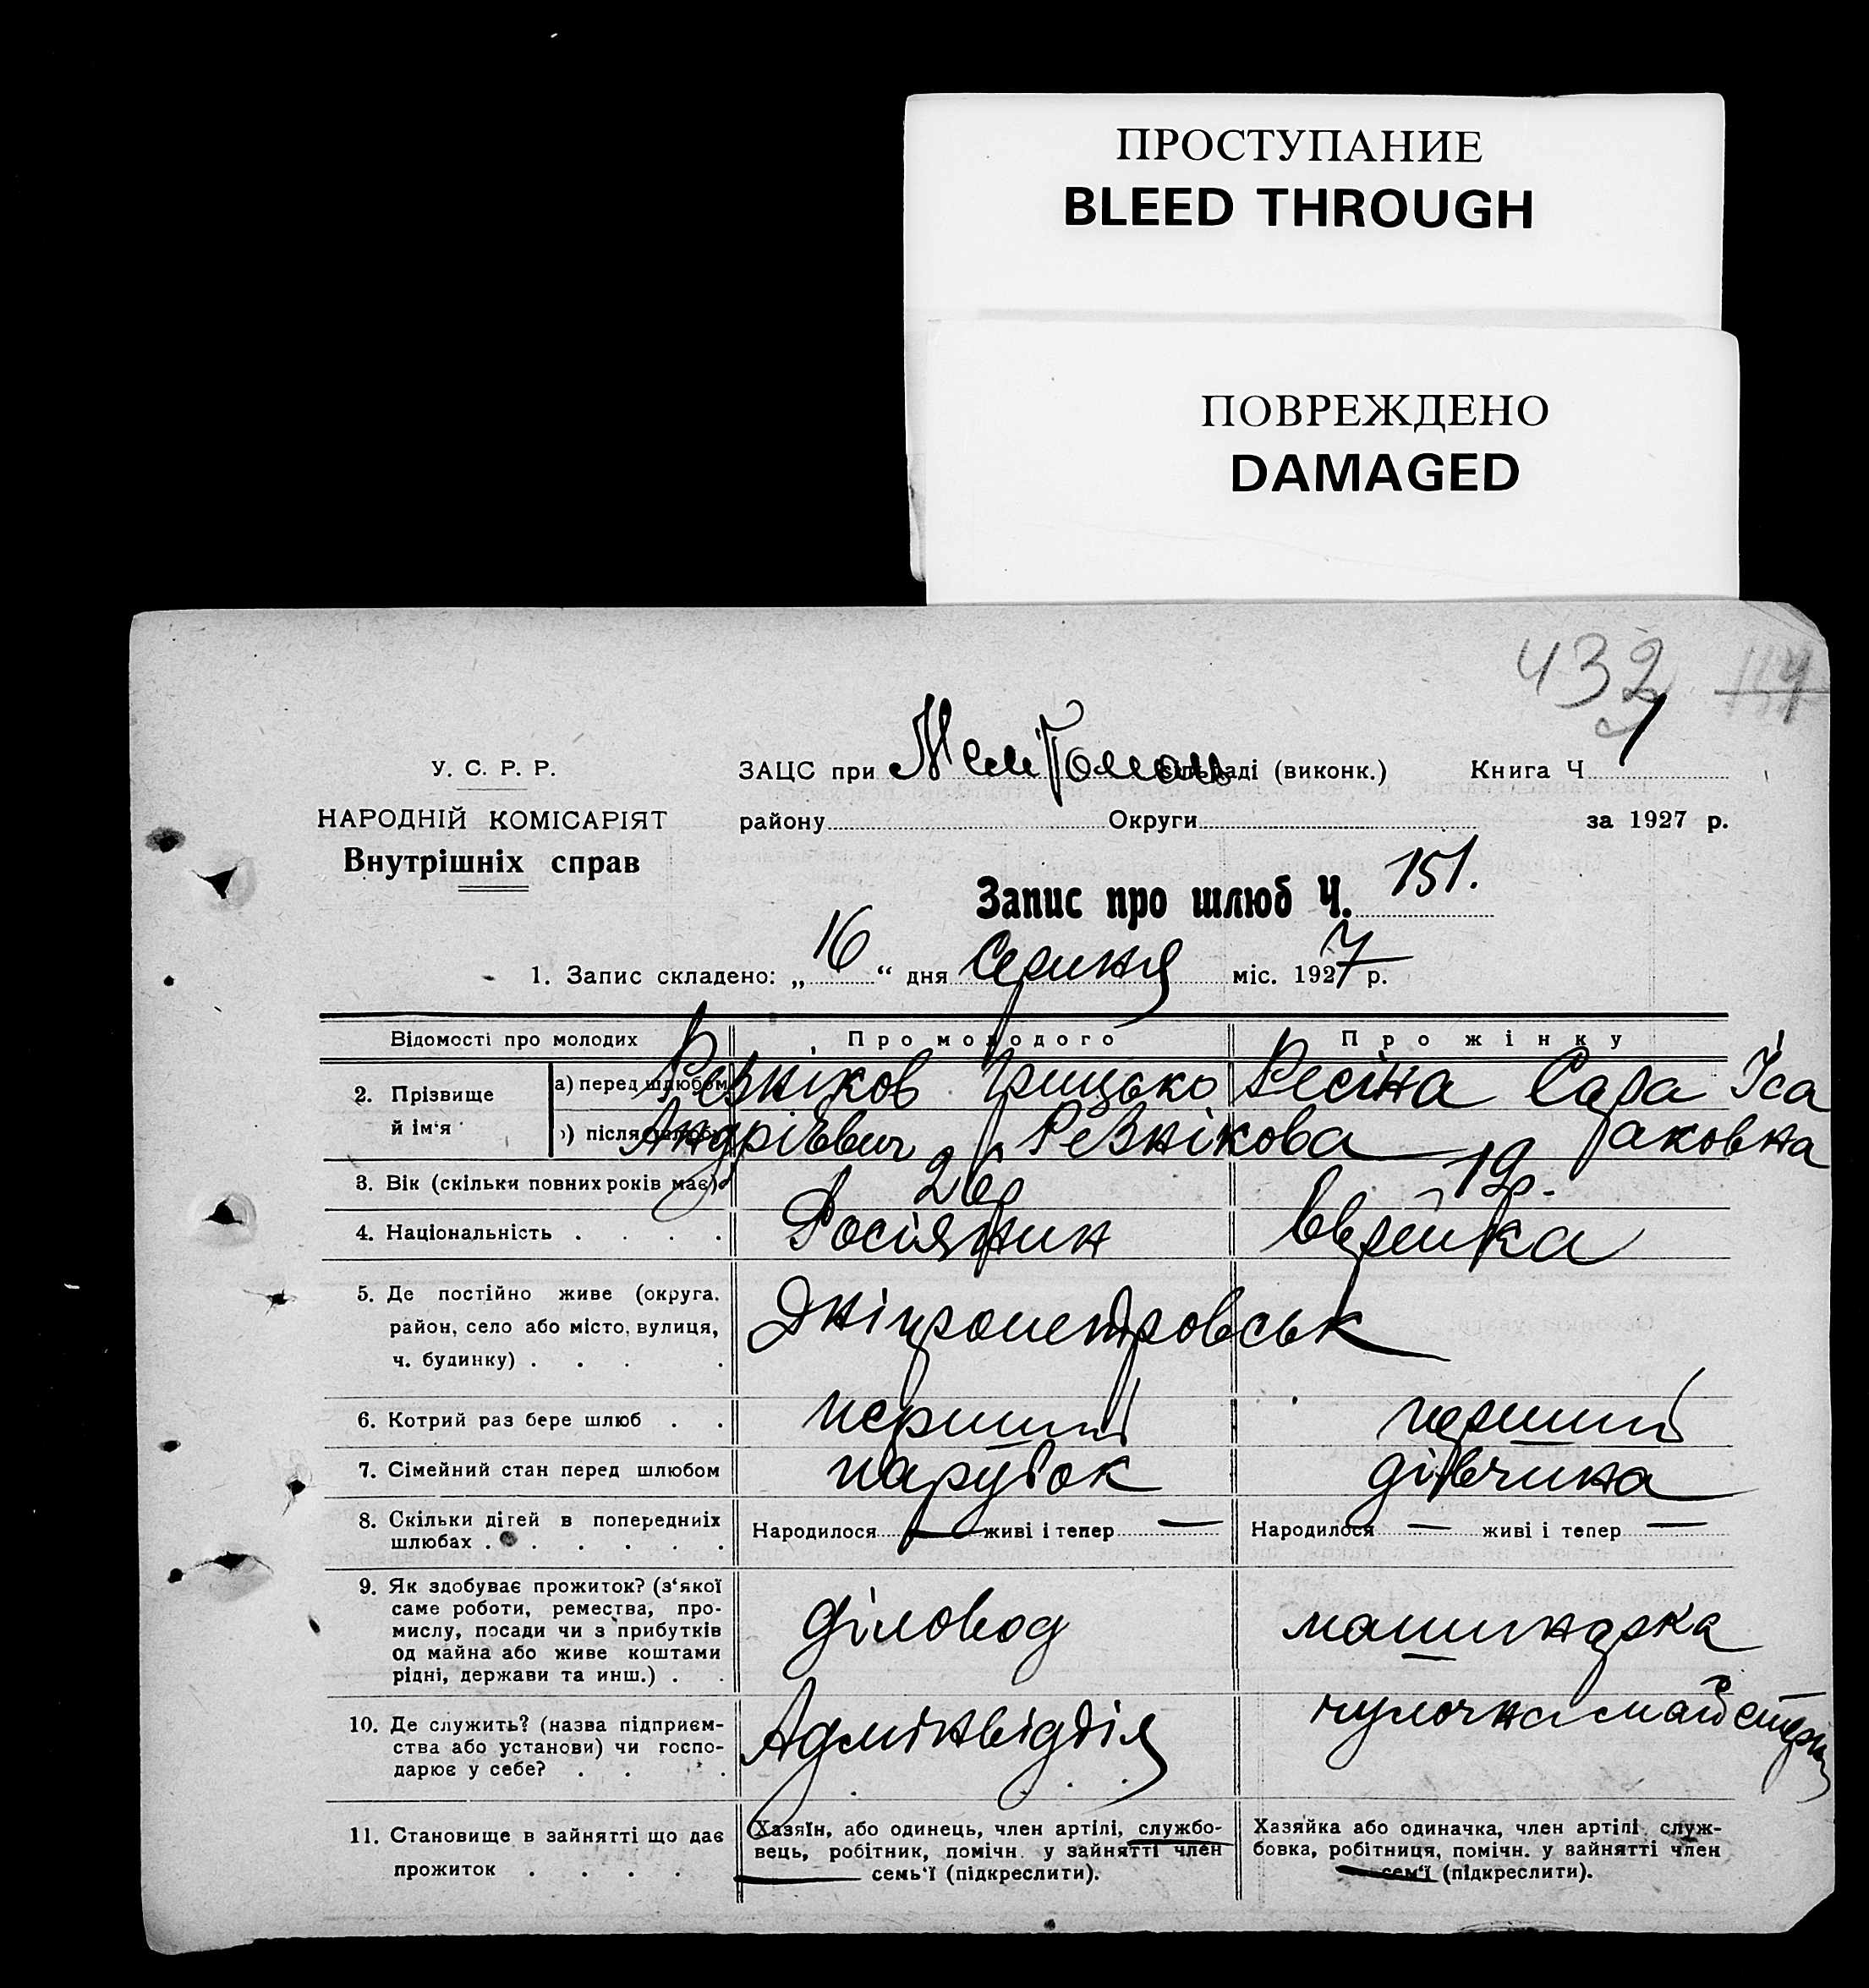 ПРОСТУПАНИЕ
BLEED THROUGH
ПОВРЕЖДЕНО
DAMAGED
432
У. С. Р. Р.
НАРОДНІЙ КОМІСАРІЯТ
Внутрішніх справ
ЗАЦС при сільраді (виконк.) Книга Ч 1
району Округи за 1927 р.
Запис про шлюб Ч. 151.
1. Запис складено: „16“ дня Серпня міс. 1927 р.
Відомості про молодих Про молодого Про жінку
2. Прізвище й ім'я а) перед шлюбом Резніков Грицько Ресіна Сара Іса
) після шлюбу Андрієвич Резнікова аковна
3. Вік (скільки повних років має) 26р 19р.
4. Національність . . . . Росіянин Єврейка
5. Де постійно живе (округа,
район, село або місто, вулиця,
ч. будинку) . . . . Дніпропетровськ
6. Котрий раз бере шлюб . . перший перший
7. Сімейний стан перед шлюбом парубок дівчина
8. Скільки дітей в попередниіх
шлюбах . . . . . . . Народилося — живі і тепер — Народилося — живі і тепер —
9. Як здобуває прожиток? (з'якої
саме роботи, ремества, про-
мислу, посади чи з прибутків
од майна або живе коштами
рідні, держави та инш.) . . діловод
10. Де служить? (назва підприєм-
ства або установи) чи госпо-
дарює у себе? . . . . Адмінвідділ
11. Становище в зайнятті що дає
прожиток . . . .
Хазяїн, або одинець, член артілі, службо-
вець, робітник, помічн. у зайнятті член
семь'ї (підкреслити).
Хазяйка або одиначка, член артілі, служ-
бовка, робітниця, помічн. у зайнятті член
сем'ї (підкреслити).